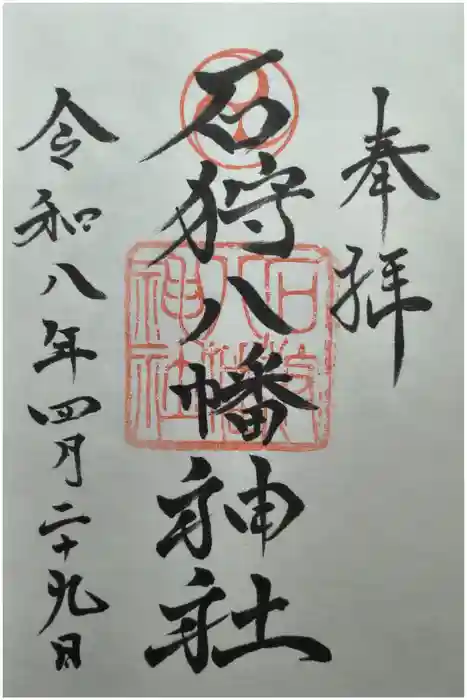 奉拝
石狩八幡神社
令和八年四月二十九日
石狩八幡神社